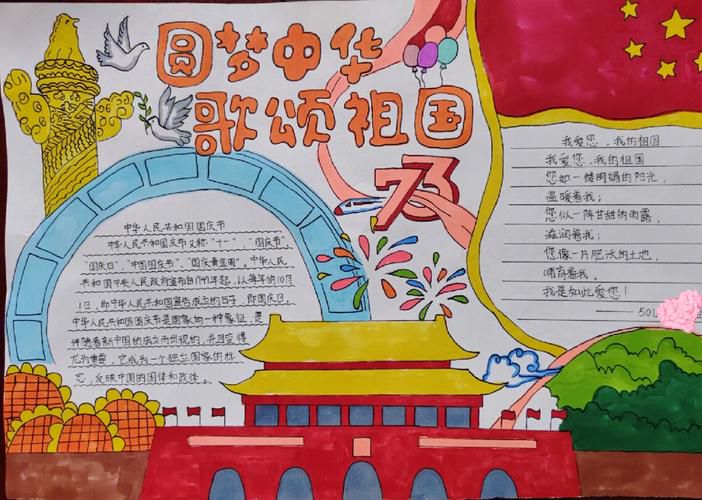 圆梦中华
歌颂祖国
73
中华人民共和国国庆节
中华人民共和国国庆节又称"十一"、"国庆节"、
国庆日"、"中国国庆节"、"国庆黄金周"。中华人民
共和国中央人民政府宣布自1949年起，以每年的10月
1日，即中华人民共和国宣告成立的日子，即国庆日。
中华人民共和国国庆节是国家的一种象征，是
伴随着新中国的成立而出现的，并且变得
尤为重要。它成为一个独立国家的标
志，反映中国的国体和政体。
我爱您，我的祖国
我爱您，我的祖国
您如一缕明媚的阳光，
温暖着我；
您似一阵甘甜的雨露，
滋润着我；
您像一片肥沃的土地，
哺育着我。
我是如此爱您！
——501